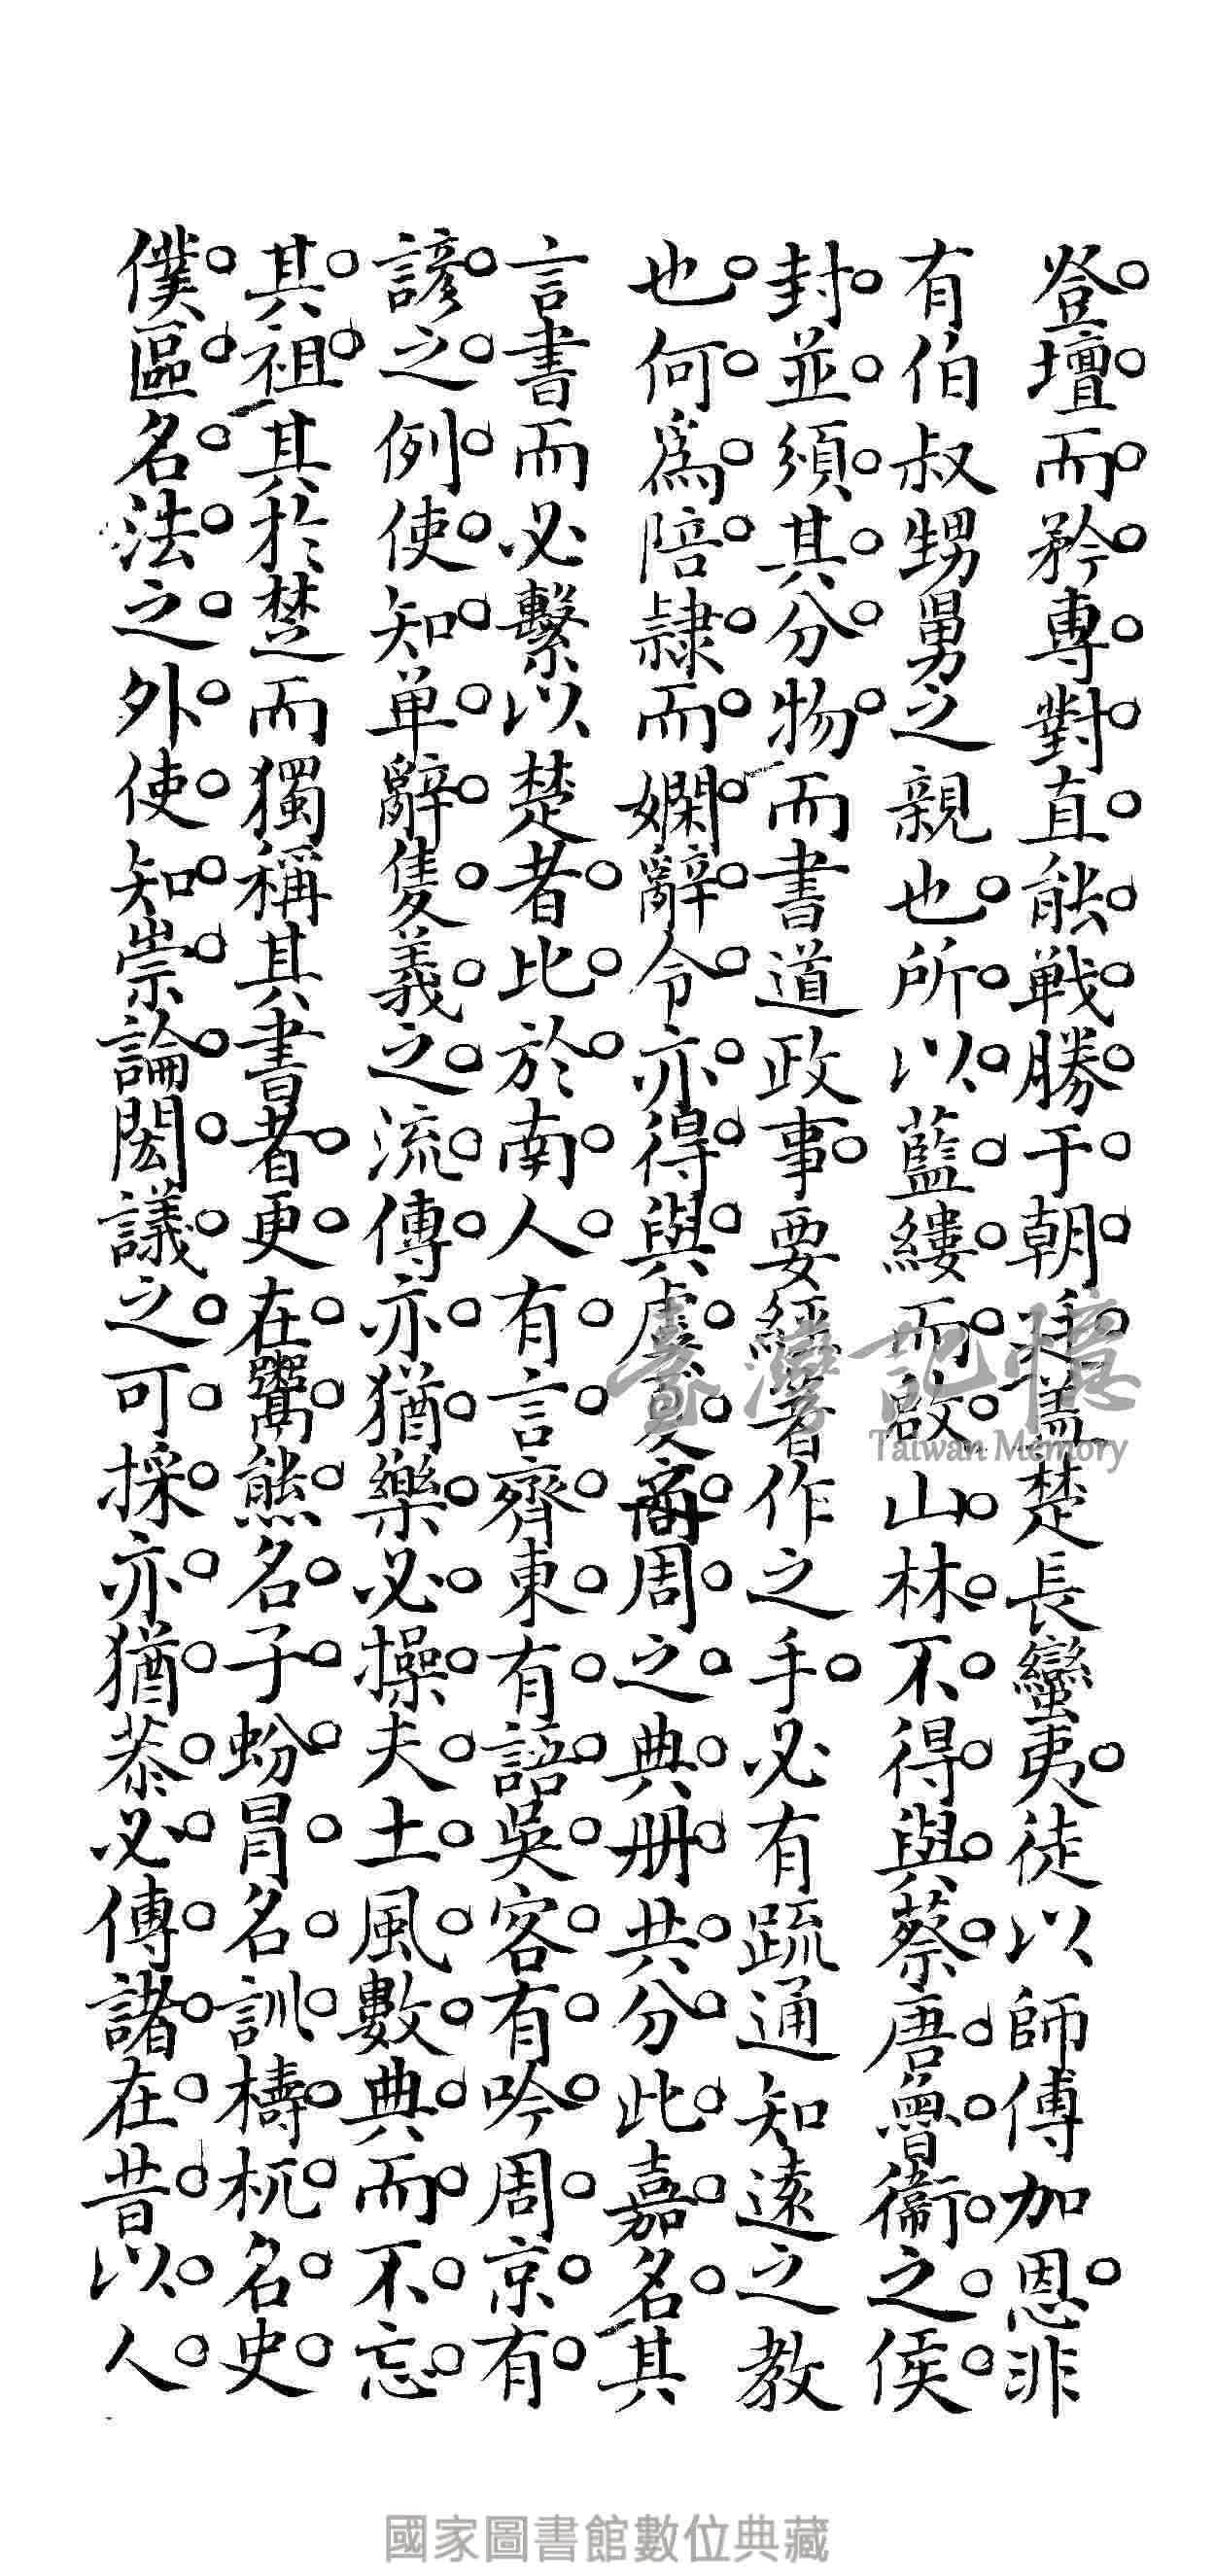 登壇而矜專對直能戰勝于朝廷蓋楚長蠻夷徒以師傅加恩非
有伯叔甥舅之親也所以藍縷而啟山林不得與蔡唐魯衛之侯
封並須其分物而書道政事要經著作之手必有疏通知遠之教
也何為陪隸而嫻辭令亦得與虞夏商周之典册共分此嘉名其
言書而必繫以楚者比於南人有言齊東有語吳客有吟周京有
諺之例使知单辭隻義之流傳亦猶樂必操夫土風數典而不忘
其祖其於楚而獨稱其書者更在鬻熊名子蚡冒名訓檮杌名史
僕區名法之外使知崇論閎議之可採亦猶恭必傳諸在昔以人
臺灣記憶
Taiwan Memory
國家圖書館數位典藏